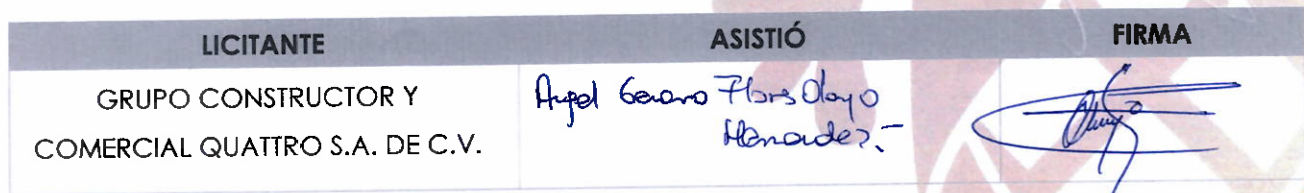 LICITANTE ASISTIÓ FIRMA
GRUPO CONSTRUCTOR Y
COMERCIAL QUATTRO S.A. DE C.V.
Angel Genaro Flores Olayo
Hernandez.-